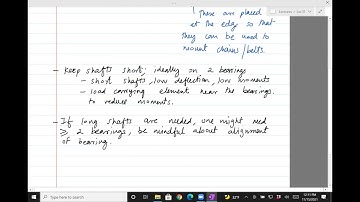 These are placed
at the edge so that
they can be used to
mount chains/belts.
- Keep shafts short; ideally on 2 bearings
- short shafts, low deflection, low moments
- load carrying element near the bearings
to reduce moments.
- If long shafts are needed, one might need
≥ 2 bearings, be mindful about alignment
of bearing.
Type here to search
12:11 PM
11/15/2021